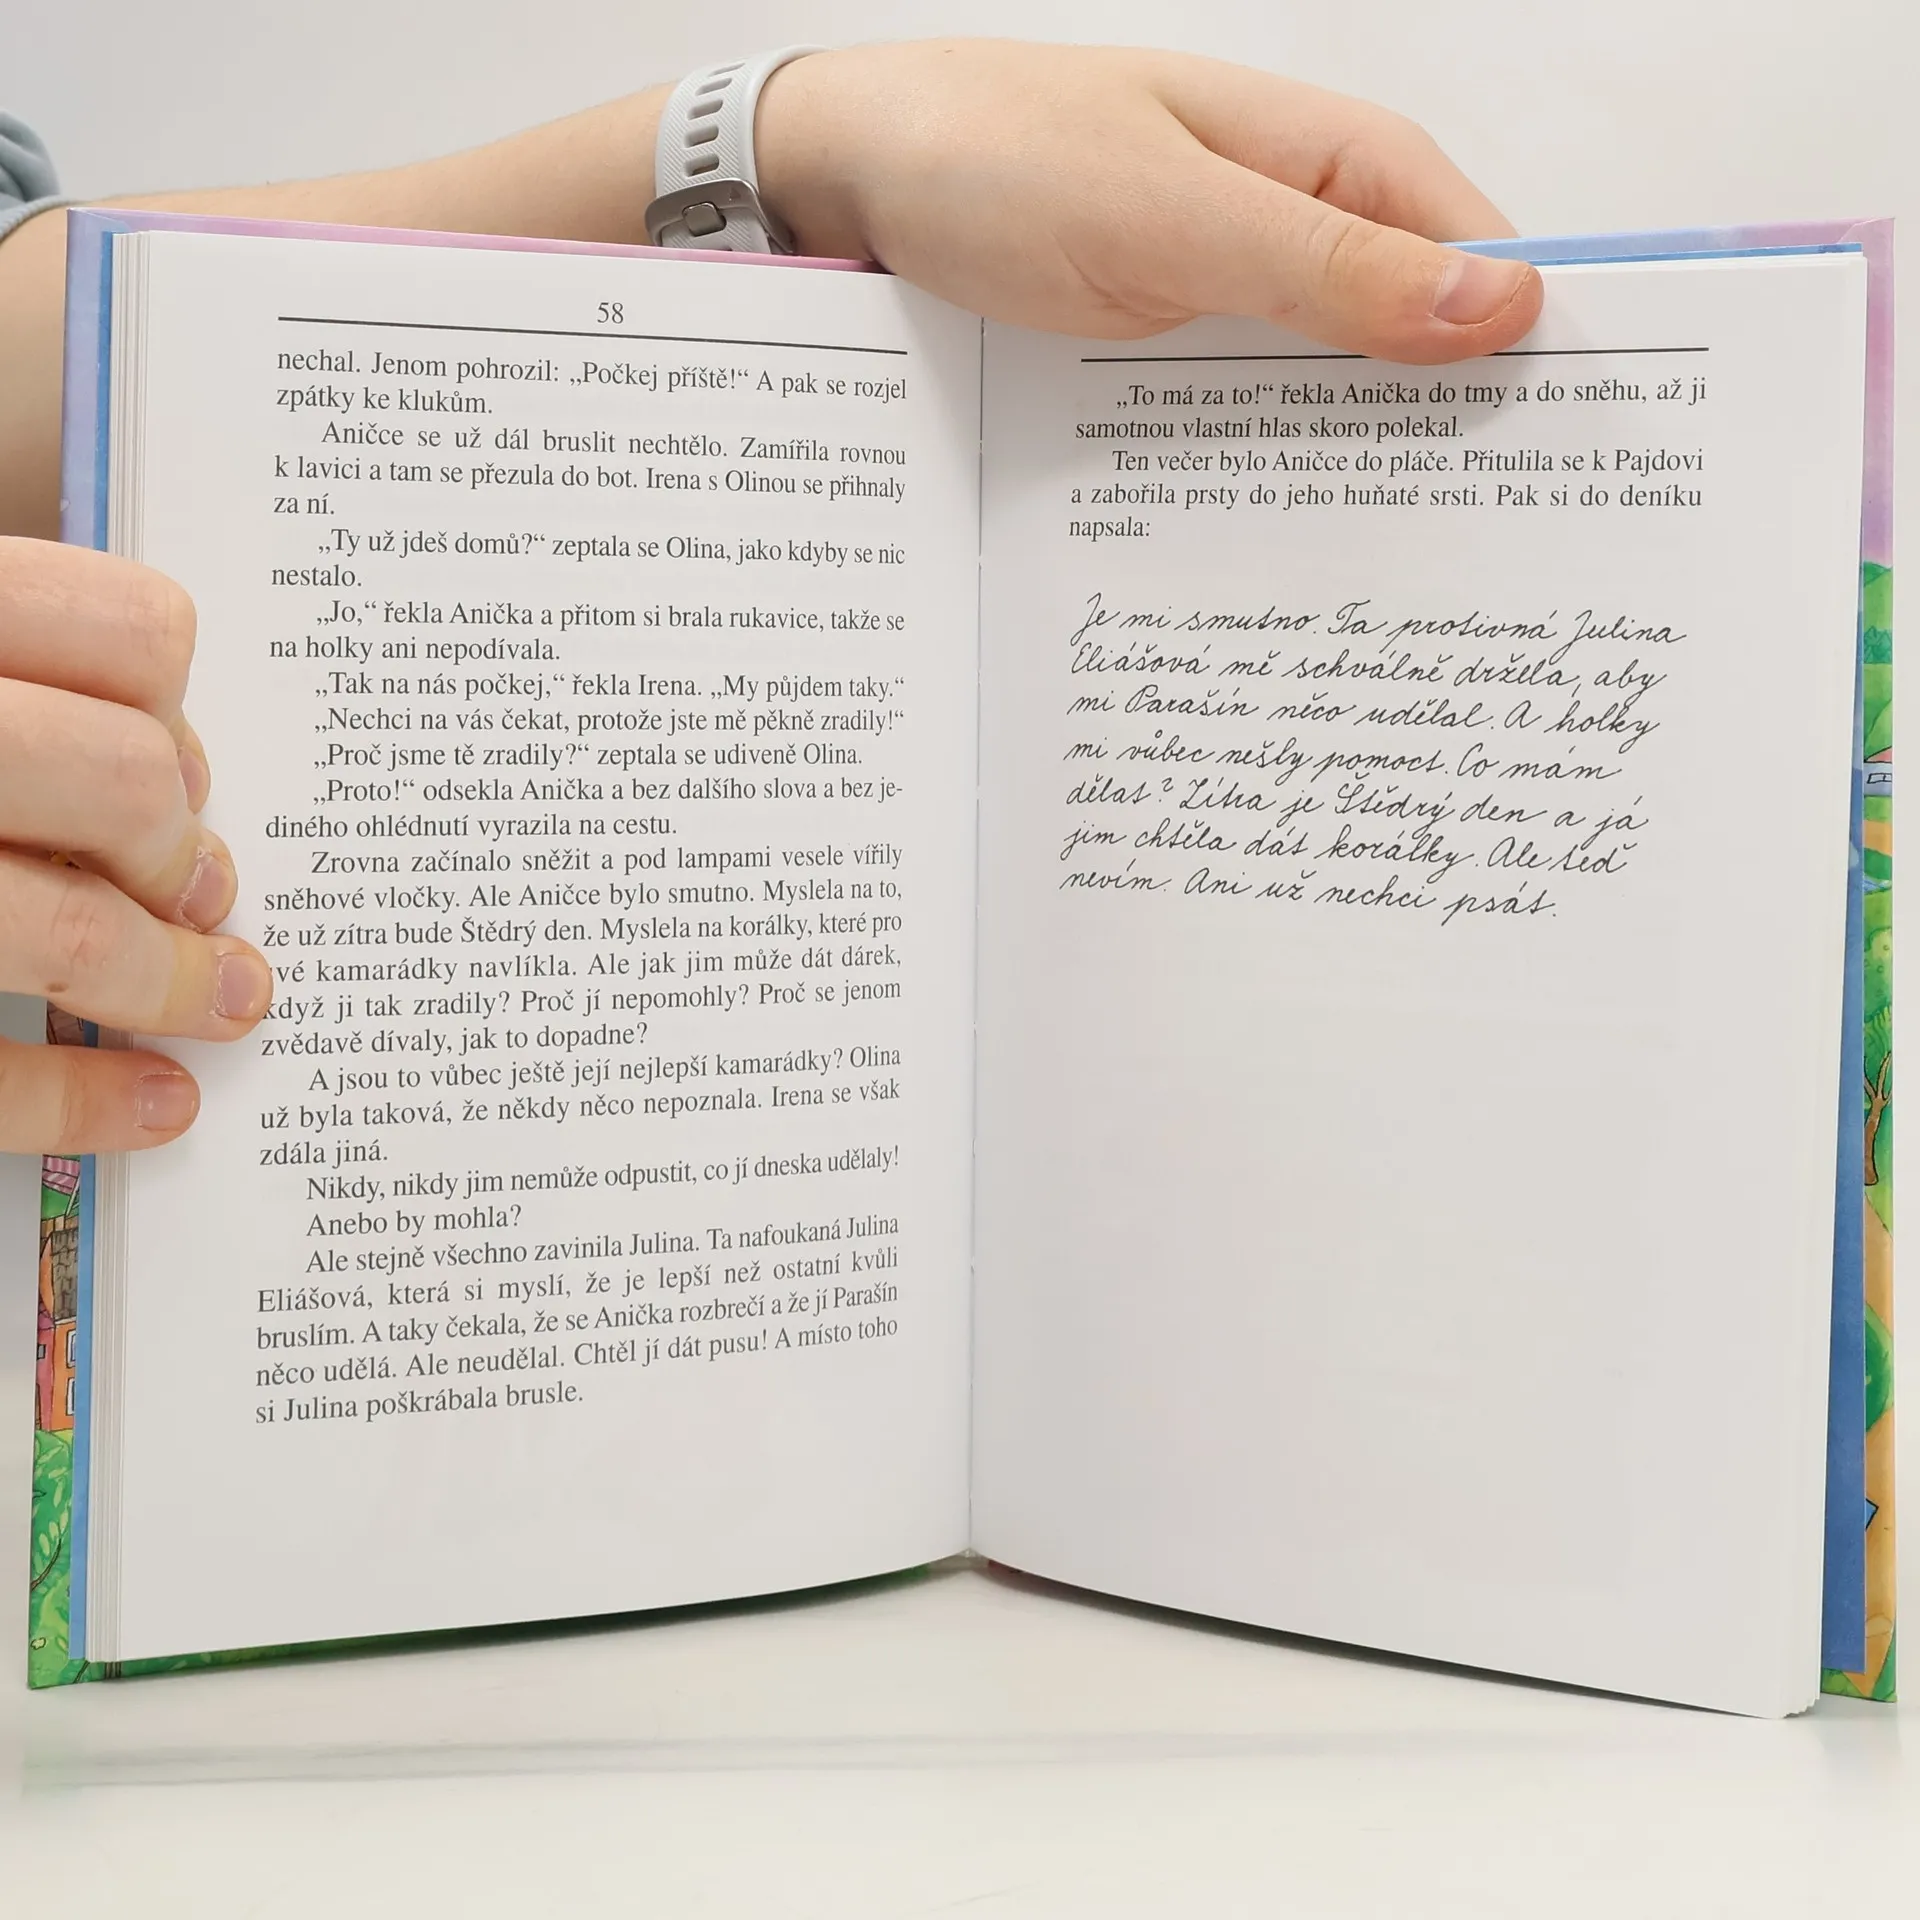 58
nechal. Jenom pohrozil: „Počkej příště!“ A pak se rozjel
zpátky ke klukům.
Aničce se už dál bruslit nechtělo. Zamířila rovnou
k lavici a tam se přezula do bot. Irena s Olinou se přihnaly
za ní.
„Ty už jdeš domů?“ zeptala se Olina, jako kdyby se nic
nestalo.
„Jo,“ řekla Anička a přitom si brala rukavice, takže se
na holky ani nepodívala.
„Tak na nás počkej,“ řekla Irena. „My půjdem taky.“
„Nechci na vás čekat, protože jste mě pěkně zradily!“
„Proč jsme tě zradily?“ zeptala se udiveně Olina.
„Proto!“ odsekla Anička a bez dalšího slova a bez je-
diného ohlédnutí vyrazila na cestu.
Zrovna začínalo sněžit a pod lampami vesele vířily
sněhové vločky. Ale Aničce bylo smutno. Myslela na to,
že už zítra bude Štědrý den. Myslela na korálky, které pro
své kamarádky navlíkla. Ale jak jim může dát dárek,
když ji tak zradily? Proč jí nepomohly? Proč se jenom
zvědavě dívaly, jak to dopadne?
A jsou to vůbec ještě její nejlepší kamarádky? Olina
už byla taková, že někdy něco nepoznala. Irena se však
zdála jiná.
Nikdy, nikdy jim nemůže odpustit, co jí dneska udělaly!
Anebo by mohla?
Ale stejně všechno zavinila Julina. Ta nafoukaná Julina
Eliášová, která si myslí, že je lepší než ostatní kvůli
bruslím. A taky čekala, že se Anička rozbrečí a že jí Parašín
něco udělá. Ale neudělal. Chtěl jí dát pusu! A místo toho
si Julina poškrábala brusle.
„To má za to!“ řekla Anička do tmy a do sněhu, až ji
samotnou vlastní hlas skoro polekal.
Ten večer bylo Aničce do pláče. Přitulila se k Pajdovi
a zabořila prsty do jeho huňaté srsti. Pak si do deníku
napsala:
Je mi smutno. Ta protivná Julina
Eliášová mě schválně držela, aby
mi Parašín něco udělal. A holky
mi vůbec nešly pomoct. Co mám
dělat? Zítra je Štědrý den a já
jim chtěla dát korálky. Ale teď
nevím. Ani už nechci psát.